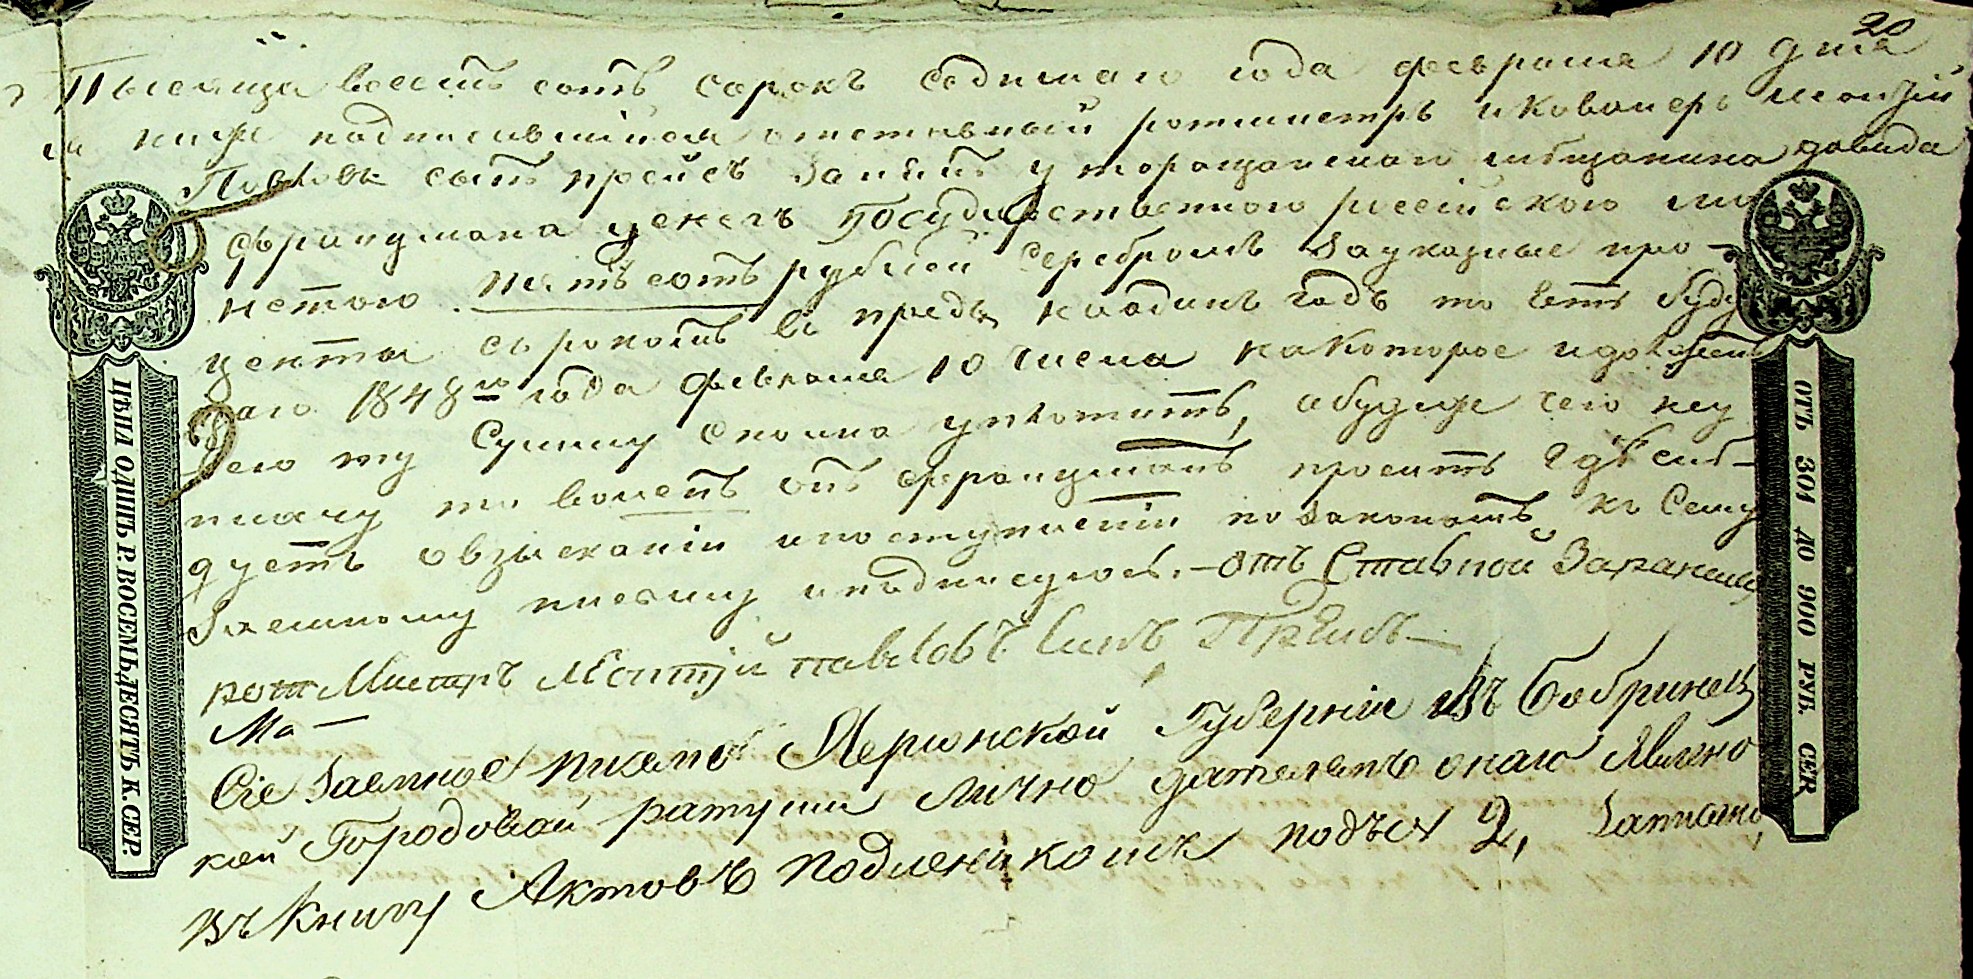 20
Тысяща восемъ сотъ сорокъ седмаго года февраля 10 дня
я ниже подписавшійся отставный ротмистръ и коволеръ
Павловъ сынъ прейсъ занялъ у торащанскаго мѣщанина давида
франузмана денегъ Государственною россійскою мо
нетою пятьсотъ рублей серебромъ за указные про-
центы срокомъ въ предъ на одинъ годъ то есть буду
щаго 1848го года февраля 10 числа на которое и долженъ
всю ту Сумму сполна уплотить, а буде чего не у
плачу то воленъ онъ просить гдѣ слѣ-
дуетъ о взысканіи и поступленіи по законамъ къ Сему
Заемному писму и подписуюсь. - отъ Ставной
ротМистръ павловъ Синъ Прейсъ
Ма
Сіе Заемное писмо Херсонской Губерніи въ Бобринец
кой Городовой ратуши лично дателемъ онаго Явлено
въ Книгу Актовъ подленикомъ подъ № 2, Записано,
ЦѢНА ОДИНЪ Р. ВОСЕМЬДЕСЯТЪ К. СЕР.
ОТЪ 301 ДО 900 РУБ. СЕР.